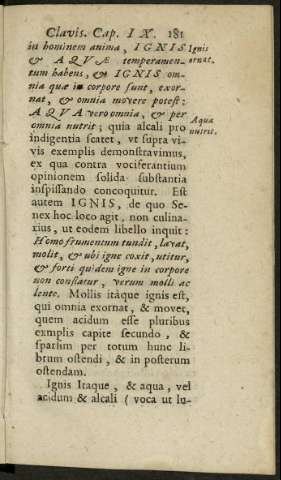 Clavis. Cap. IX. 181
in hominem anima, IGNIS Ignis
& AQUÆ temperamen- ornat.
tum habens, & IGNIS om-
nia quæ in corpore sunt, exor-
nat, & omnia movere potest:
AQUA vero omnia, & per Aqua
omnia nutrit; quia alcali pro nutrit.
indigentia scatet, vt supra vi-
vis exemplis demonstravimus,
ex qua contra vociferantium
opinionem solida substantia
inspissando concoquitur. Est
autem IGNIS, de quo Se-
nex hoc loco agit, non culina-
rius, ut eodem libello inquit:
Homo frumentum tundit, lavat,
molit, & ubi igne coxit, utitur,
& forti quidem igne in corpore
non conflatur, verum molli ac
lente. Mollis itáque ignis est,
qui omnia exornat, & movet,
quem acidum esse pluribus
exmplis capite secundo, &
sparsim per totum hunc li-
brum ostendi, & in posterum
ostendam.
Ignis Itaque, & aqua, vel
acidum & alcali (voca ut lu-